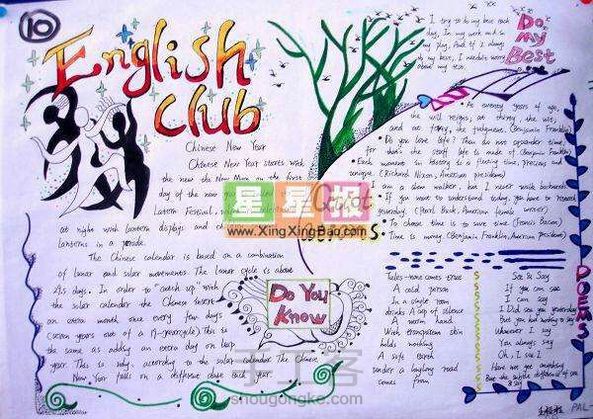 10
English
Club
Chinese New Year
Chinese New Year starts with
the new Moon on the first
day of the new
Lantern Festival,
at night with lantern displays and
lanterns in a parade.
The Chinese calendar is based on a combination
of lunar and solar movements. The lunar cycle is about
29.5 days. In order to "catch up" with
the solar calendar the Chinese insert
an extra month once every few years
(seven years out of a 19-yearcycle). This is
the same as adding an extra day on leap
year. This is why, according to the solar calendar, the Chinese
New Year falls on a different date each year.
星星报
www.XingXingBao.com
Do You
Know
I try to do my best each
day, In my work and in
my play, And if I always
do my best, I needn't worry
about my rest.
Do
my
Best
At twenty years of age,
the will reigns; at thirty, the wit;
and at forty, the judgment. (Benjamin Franklin)
Do you love life? Then do not squander time,
for that's the stuff life is made of. (Benjamin Franklin)
Each moment in history is a fleeting time, precious and
unique. (Richard Nixon, American president)
I am a slow walker, but I never walk backwards.
If you want to understand today, you have to research
yesterday. (Pearl Buck, American female writer)
To choose time is to save time. (Francis Bacon)
Time is money. (Benjamin Franklin, American president)
A cold person
In a single room
drinks A cup of silence
A worm nothing
under a laughing road
comes from
See & Say
If you can see
I can say
I Did see you yesterday
But you had nothing to say
Whenever I say
You always say
Oh, I see I
POEMS
手工客
shougongke.com
PAL-